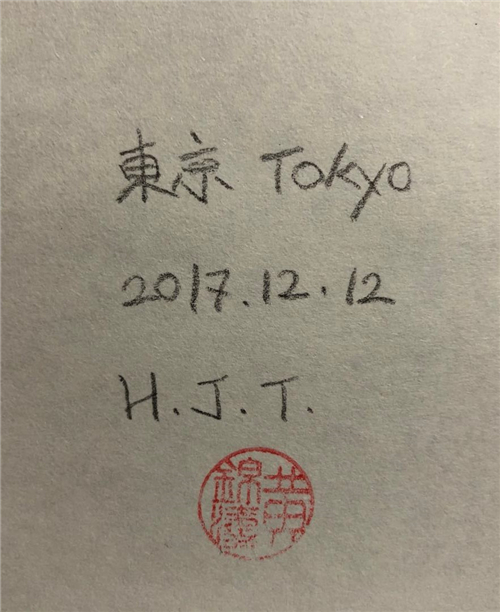 東京 Tokyo
2017.12.12
H.J.T.